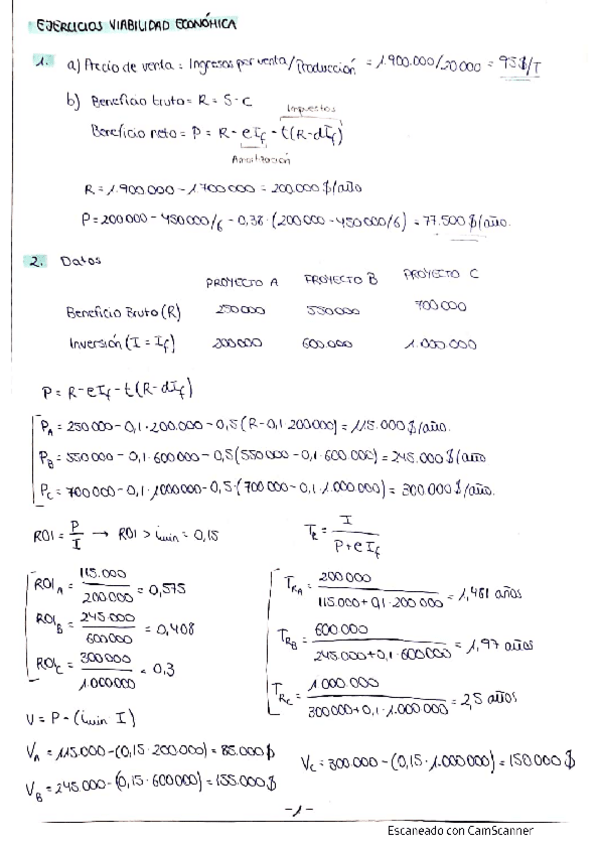 EJERCICIOS VIABILIDAD ECONÓMICA
1. a) Precio de venta = Ingresos por venta/Producción = 1.900.000/20 000 = 95 $/T
b) Beneficio bruto = R = S - C
Impuestos
Beneficio neto = P = R - eIf - t(R-dIf)
Amortización
R = 1.900 000 - 1.700 000 = 200.000 $/año
P = 200 000 - 450 000/6 - 0,38·(200 000 - 450 000/6) = 77.500 $/año.
2. Datos
PROYECTO A PROYECTO B PROYECTO C
Beneficio Bruto (R) 250 000 550 000 700 000
Inversión (I = If) 200 000 600 000 1.000 000
P = R - eIf - t(R - dIf)
PA = 250 000 - 0,1·200.000 - 0,5(R - 0,1·200000) = 115.000 $/año.
PB = 550 000 - 0,1·600 000 - 0,5(550 000 - 0,1·600 000) = 245.000 $/año
PC = 700 000 - 0,1·1000 000 - 0,5·(700 000 - 0,1·1.000 000) = 300.000 $/año.
ROI = P/I → ROI > imin = 0,15 TR = I/(P + eIf)
ROIA = 115.000/200 000 = 0,575 TRA = 200 000/(115.000 + 0,1·200 000) = 1,481 años
ROIB = 245.000/600 000 = 0,408 TRB = 600 000/(245.000 + 0,1·600 000) = 1,97 años
ROIC = 300 000/1.000 000 = 0,3 TRC = 1 000.000/(300 000 + 0,1·1.000 000) = 2,5 años
V = P - (imin·I)
VA = 115.000 - (0,15·200 000) = 85.000 $ VC = 300.000 - (0,15·1.000 000) = 150 000 $
VB = 245.000 - (0,15·600 000) = 155.000 $
-1-
Escaneado con CamScanner